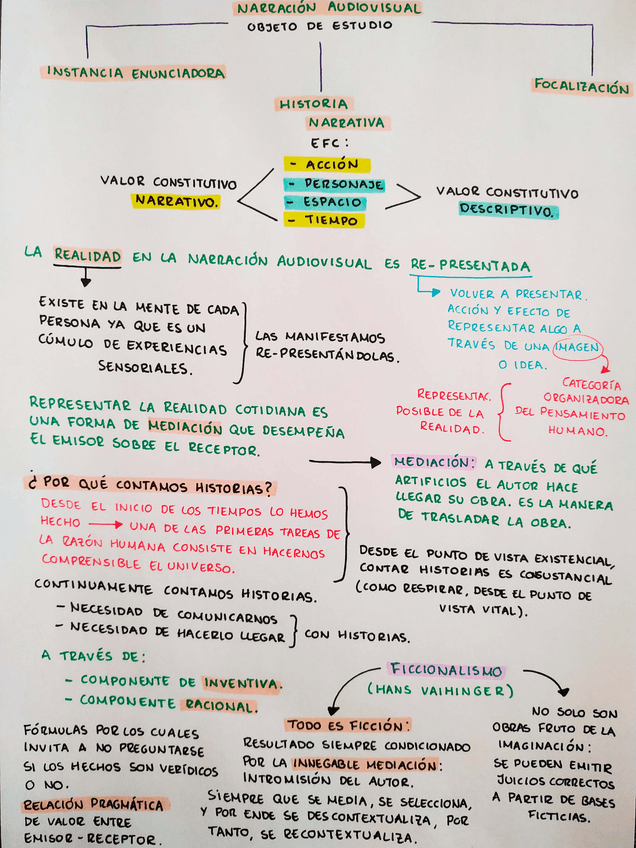 NARRACIÓN AUDIOVISUAL
OBJETO DE ESTUDIO
INSTANCIA ENUNCIADORA
HISTORIA
NARRATIVA
FOCALIZACIÓN
EFC:
- ACCIÓN
- PERSONAJE
- ESPACIO
- TIEMPO
VALOR CONSTITUTIVO
NARRATIVO.
VALOR CONSTITUTIVO
DESCRIPTIVO.
LA REALIDAD EN LA NARRACIÓN AUDIOVISUAL ES RE-PRESENTADA
EXISTE EN LA MENTE DE CADA
PERSONA YA QUE ES UN
CÚMULO DE EXPERIENCIAS
SENSORIALES.
LAS MANIFESTAMOS
RE-PRESENTÁNDOLAS.
VOLVER A PRESENTAR.
ACCIÓN Y EFECTO DE
REPRESENTAR ALGO A
TRAVÉS DE UNA IMAGEN
O IDEA.
CATEGORÍA
ORGANIZADORA
DEL PENSAMIENTO
HUMANO.
REPRESENTAC.
POSIBLE DE LA
REALIDAD.
REPRESENTAR LA REALIDAD COTIDIANA ES
UNA FORMA DE MEDIACIÓN QUE DESEMPEÑA
EL EMISOR SOBRE EL RECEPTOR.
MEDIACIÓN: A TRAVÉS DE QUÉ
ARTIFICIOS EL AUTOR HACE
LLEGAR SU OBRA. ES LA MANERA
DE TRASLADAR LA OBRA.
¿POR QUÉ CONTAMOS HISTORIAS?
DESDE EL INICIO DE LOS TIEMPOS LO HEMOS
HECHO → UNA DE LAS PRIMERAS TAREAS DE
LA RAZÓN HUMANA CONSISTE EN HACERNOS
COMPRENSIBLE EL UNIVERSO.
DESDE EL PUNTO DE VISTA EXISTENCIAL,
CONTAR HISTORIAS ES COSUSTANCIAL
(COMO RESPIRAR, DESDE EL PUNTO DE
VISTA VITAL).
CONTINUAMENTE CONTAMOS HISTORIAS.
- NECESIDAD DE COMUNICARNOS
- NECESIDAD DE HACERLO LLEGAR
CON HISTORIAS.
A TRAVÉS DE:
- COMPONENTE DE INVENTIVA.
- COMPONENTE RACIONAL.
FÓRMULAS POR LOS CUALES
INVITA A NO PREGUNTARSE
SI LOS HECHOS SON VERÍDICOS
O NO.
RELACIÓN PRAGMÁTICA
DE VALOR ENTRE
EMISOR-RECEPTOR.
FICCIONALISMO
(HANS VAIHINGER)
TODO ES FICCIÓN:
RESULTADO SIEMPRE CONDICIONADO
POR LA INNEGABLE MEDIACIÓN:
INTROMISIÓN DEL AUTOR.
SIEMPRE QUE SE MEDIA, SE SELECCIONA,
Y POR ENDE SE DESCONTEXTUALIZA, POR
TANTO, SE RECONTEXTUALIZA.
NO SOLO SON
OBRAS FRUTO DE LA
IMAGINACIÓN:
SE PUEDEN EMITIR
JUICIOS CORRECTOS
A PARTIR DE BASES
FICTICIAS.